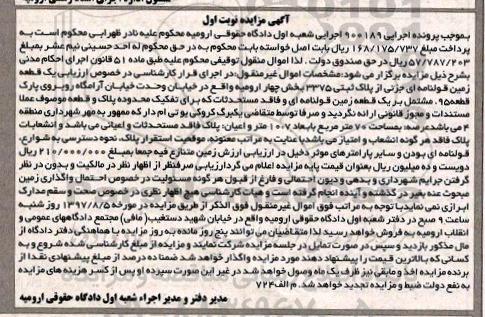 آگهی مزایده نوبت اول
بموجب پرونده اجرایی ۹۰۰۱۸۹ اجرایی شعبه اول دادگاه حقوقی ارومیه محکوم علیه نادر ظهرابی محکوم است به
پرداخت مبلغ ۱۶۸/۱۷۵/۷۳۷ ریال بابت اصل خواسته بابت محکوم به در حق محکوم له احد حسینی نیم عشر بمبلغ
۵۷/۷۸۷/۲۰۳ ریال در حق صندوق دولت . لذا اموال منقول توقیفی محکوم علیه طبق ماده ۵۱ قانون اجرای احکام مدنی
بشرح ذیل مزایده برگزار می شود: مشخصات اموال غیر منقول: در اجرای قرار کارشناسی در خصوص ارزیابی یک قطعه
زمین قولنامه ای جزئی از پلاک ثبتی ۳۳۷۵ بخش چهار ارومیه واقع در خیابان وحدت خیابان آرامگاه روبروی پارک
قطعه ۹۵، مشتمل بر یک قطعه زمین قولنامه ای و فاقد مستحدثات که برای تفکیک محدوده پلاک و قطعه موصوف عملا
مستندات و مجوز قانونی ارائه نگردید و صرفا توسط متقاضی یکبرگ کروکی یو تی ام دار که ممهور به مهر شهرداری منطقه
۳ می باشد عرصه: بمساحت ۷۰ متر مربع بابعاد ۷*۱۰ متر و اعیان: پلاک فاقد مستحدثات و اعیانی می باشد و انشعابات
پلاک فاقد هر گونه انشعاب و امتیاز می باشد با عنایت به مراتب معنونه، موقعیت استقرار پلاک، نحوه دسترسی به شوارع،
قولنامه ای بودن و سایر پارامترهای موثر دخیل در ارزیابی ارزش زمین متنازع فیه جمعا بمبلغ ۲۱۰/۰۰۰/۰۰۰ ریال
دویست و ده میلیون ریال بعنوان قیمت پایه مزایده اعلام می گردد ارزیابی صرفنظر از اظهار نظر در مالکیت و بدون در نظر
گرفتن جرایم شهرداری و بدهی و دیون احتمالی و فارغ از قبول هر گونه مسئولیت در خصوص احتمال واگذاری زمین
مبحوث عنه بغیر در گذشته و آینده انجام گرفته است و هیات کارشناسی هیچ اظهار نظری در خصوص صحت و سقم مدارک
ابرازی نمی نماید با توجه به مراتب فوق اموال غیر منقول فوق الذکر از طریق مزایده در مورخه ۱۳۹۷/۸/۵ روز شنبه
ساعت ۹ صبح در دفتر شعبه اول دادگاه حقوقی ارومیه واقع در خیابان شهید دستغیب (مافی) مجتمع دادگاههای عمومی و
انقلاب ارومیه به فروش خواهد رسید لذا متقاضیان می توانند پنج روز مانده به روز مزایده با هماهنگی دفتر دادگاه از
مال مذکور بازدید و سپس در صورت تمایل در جلسه مزایده شرکت نمایند و مزایده از مبلغ کارشناسی شده شروع و به
کسانی که بالاترین قیمت را پیشنهاد دهند مورد مزایده واگذار خواهد شد ضمنا ده درصد از مبلغ پیشنهادی نقدا از
برنده مزایده اخذ و مابقی نیز ظرف یک ماه وصول خواهد شد در غیر این صورت سپرده او پس از کسر هزینه های مزایده
به نفع دولت ضبط و مزایده تجدید خواهد شد. م الف ۷۲۴
مدیر دفتر و مدیر اجراء شعبه اول دادگاه حقوقی ارومیه